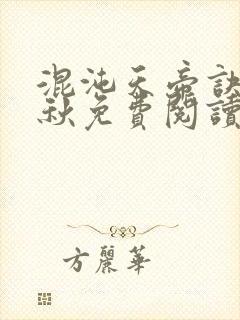 混沌天帝訣
秋免費閱讀
方麗華